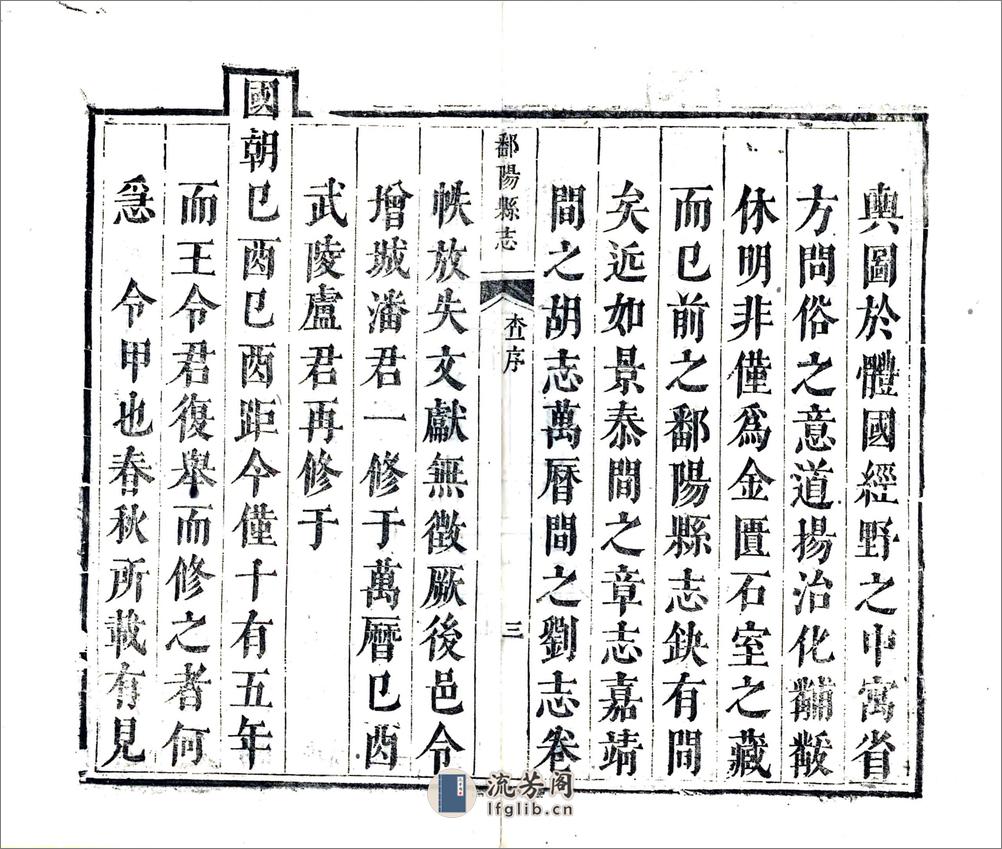 輿圖於體國經野之中寓省
方問俗之意道揚治化黼黻
休明非僅為金匱石室之藏
而已前之鄱陽縣志缺有間
矣近如景泰間之章志嘉靖
間之胡志萬曆間之劉志卷
鄱陽縣志 查序 三
帙放失文獻無徵厥後邑令
增城潘君一修于萬曆己酉
武陵盧君再修于
國朝己酉己酉距今僅十有五年
而王令君復舉而修之者何
為 令甲也春秋所載有見
流芳阁
lfglib.cn